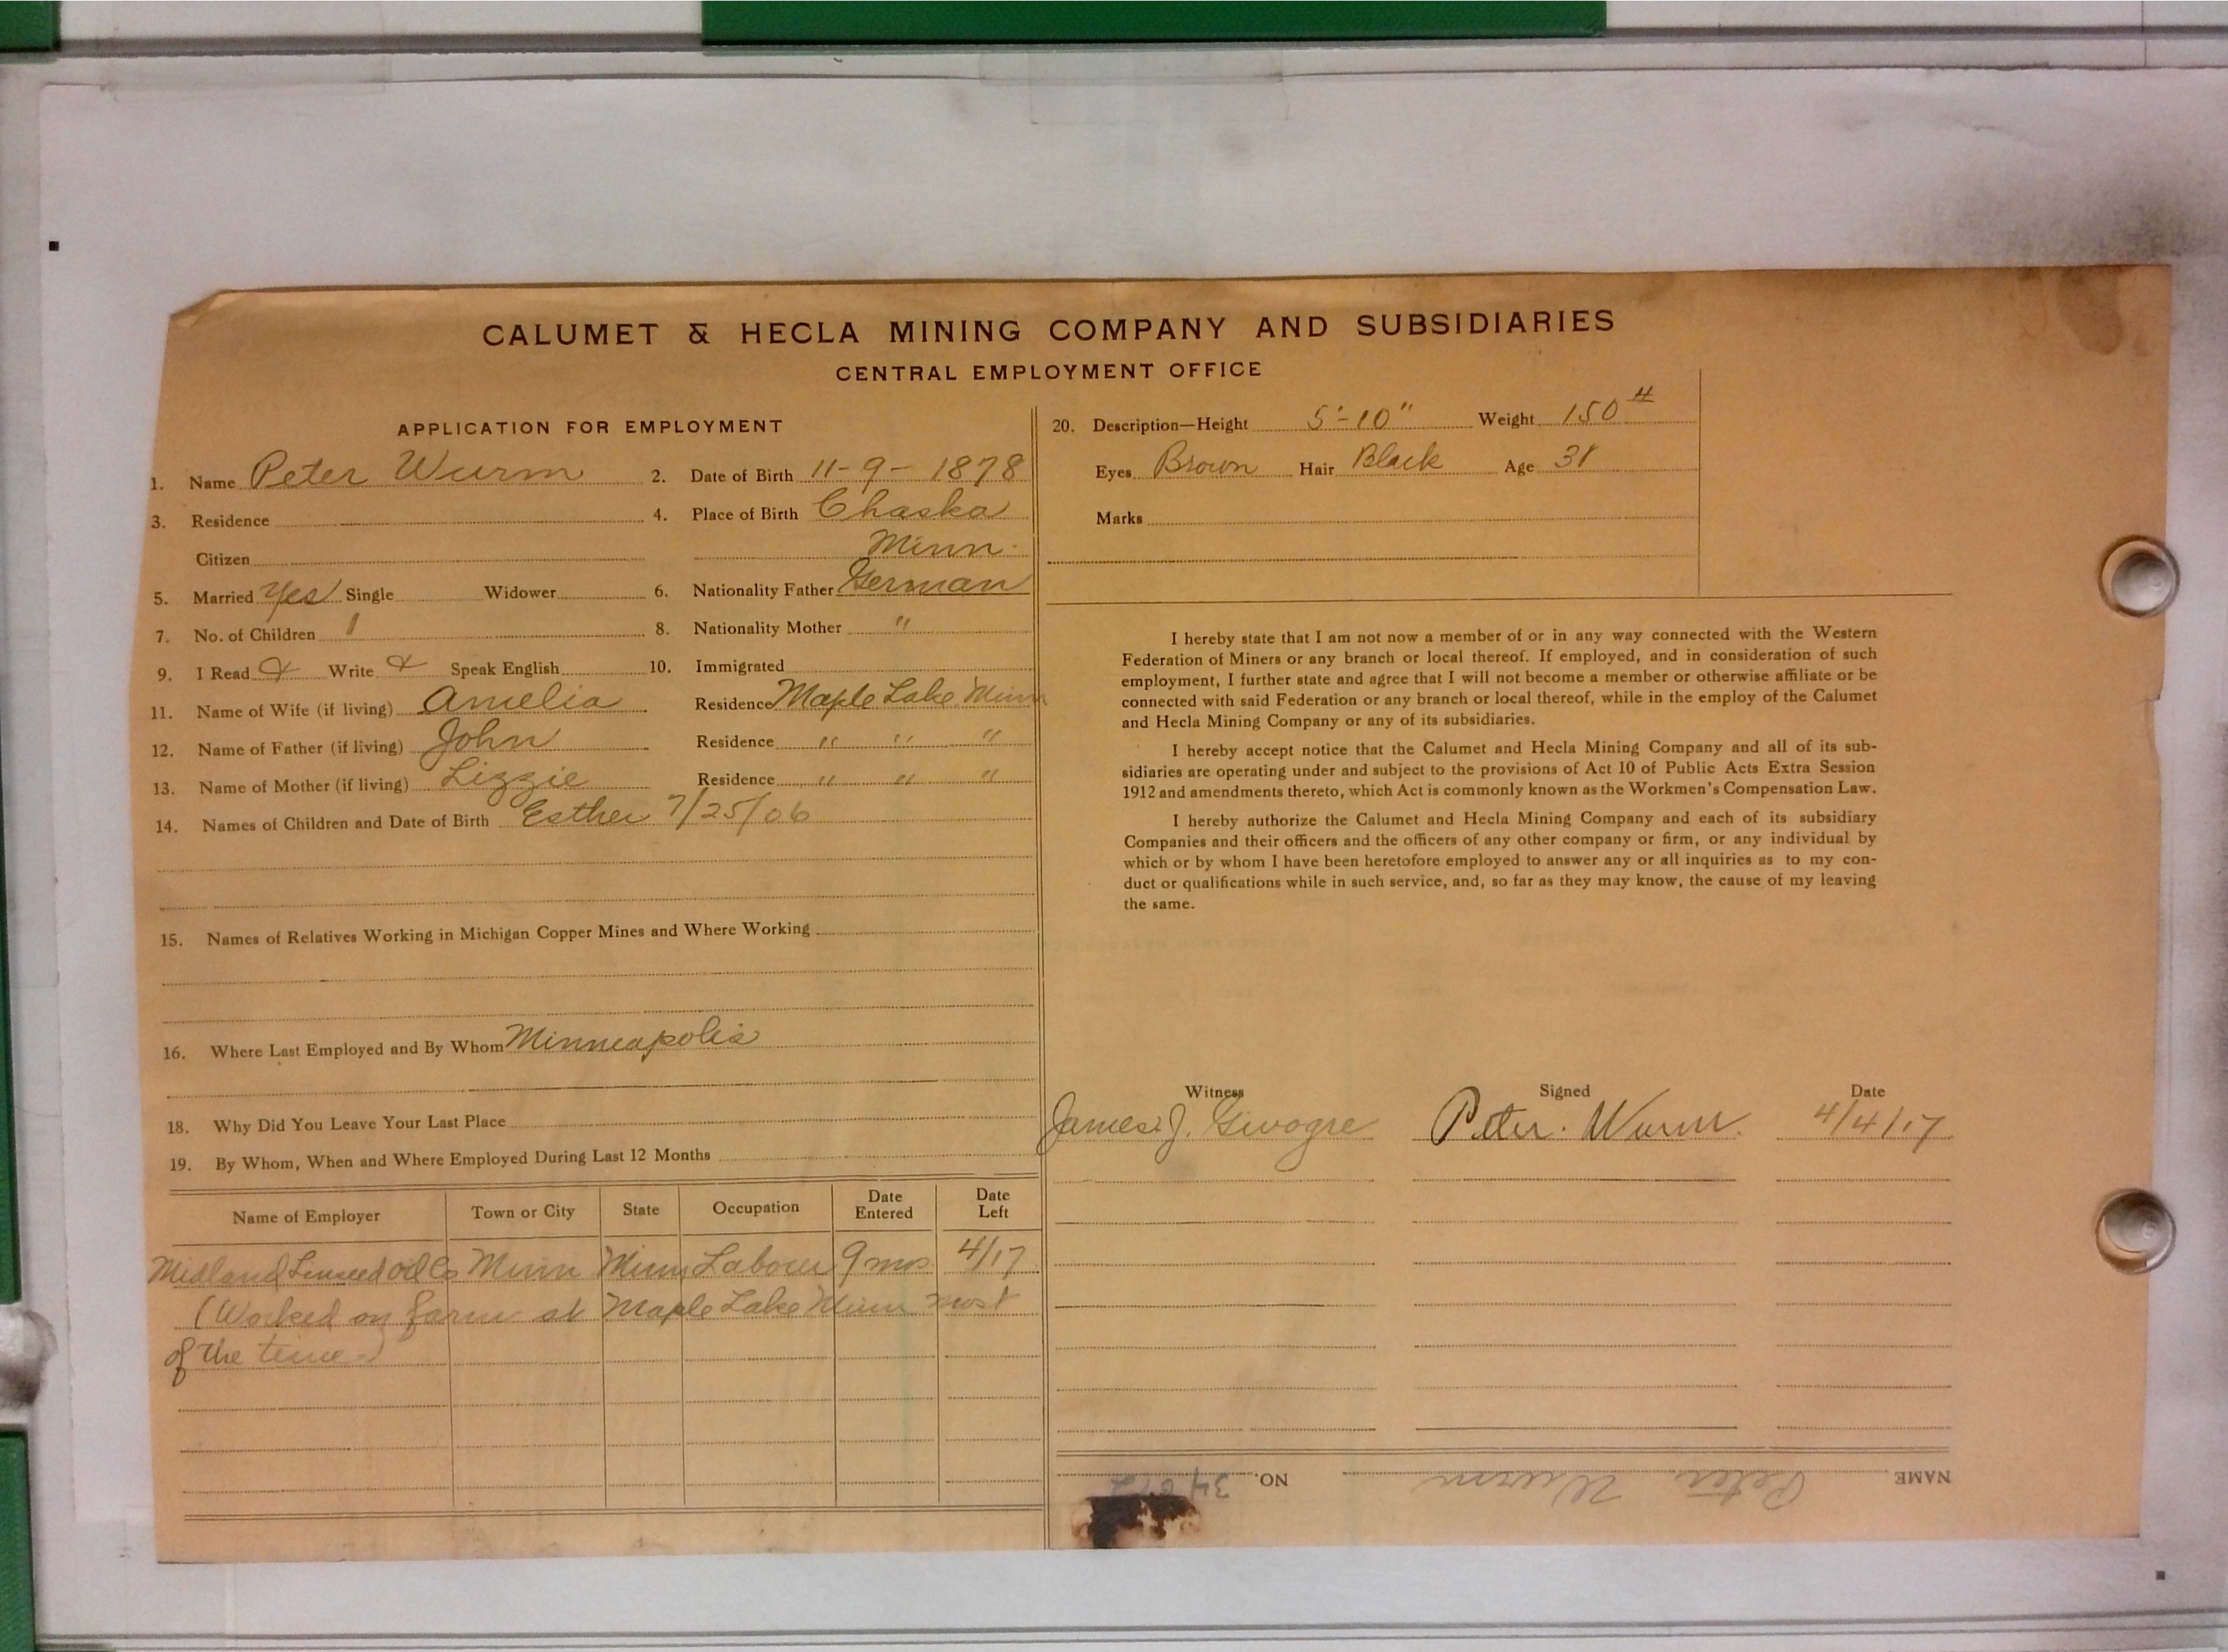 CALUMET & HECLA MINING COMPANY AND SUBSIDIARIES
CENTRAL EMPLOYMENT OFFICE
APPLICATION FOR EMPLOYMENT
1. Name Peter Wurm 2. Date of Birth 11-9-1878
3. Residence 4. Place of Birth Chaska
Citizen Minn.
5. Married Yes Single Widower 6. Nationality Father German
7. No. of Children 1 8. Nationality Mother "
9. I Read & Write & Speak English 10. Immigrated
11. Name of Wife (if living) Amelia Residence Maple Lake Minn
12. Name of Father (if living) John Residence " " "
13. Name of Mother (if living) Lizzie Residence " " "
14. Names of Children and Date of Birth Esther 7/25/06
15. Names of Relatives Working in Michigan Copper Mines and Where Working
16. Where Last Employed and By Whom Minneapolis
18. Why Did You Leave Your Last Place
19. By Whom, When and Where Employed During Last 12 Months
Name of Employer Town or City State Occupation Date Entered Date Left
Midland Linseed Oil Co Minn Minn Laborer 9 mos. 4/17
(Worked on farm at Maple Lake Minn most
of the time.)
20. Description—Height 5'-10" Weight 150 #
Eyes Brown Hair Black Age 38
Marks
I hereby state that I am not now a member of or in any way connected with the Western
Federation of Miners or any branch or local thereof. If employed, and in consideration of such
employment, I further state and agree that I will not become a member or otherwise affiliate or be
connected with said Federation or any branch or local thereof, while in the employ of the Calumet
and Hecla Mining Company or any of its subsidiaries.
I hereby accept notice that the Calumet and Hecla Mining Company and all of its sub-
sidiaries are operating under and subject to the provisions of Act 10 of Public Acts Extra Session
1912 and amendments thereto, which Act is commonly known as the Workmen's Compensation Law.
I hereby authorize the Calumet and Hecla Mining Company and each of its subsidiary
Companies and their officers and the officers of any other company or firm, or any individual by
which or by whom I have been heretofore employed to answer any or all inquiries as to my con-
duct or qualifications while in such service, and, so far as they may know, the cause of my leaving
the same.
Witness Signed Date
James J. Peter Wurm. 4/4/17
NAME Peter Wurm NO.